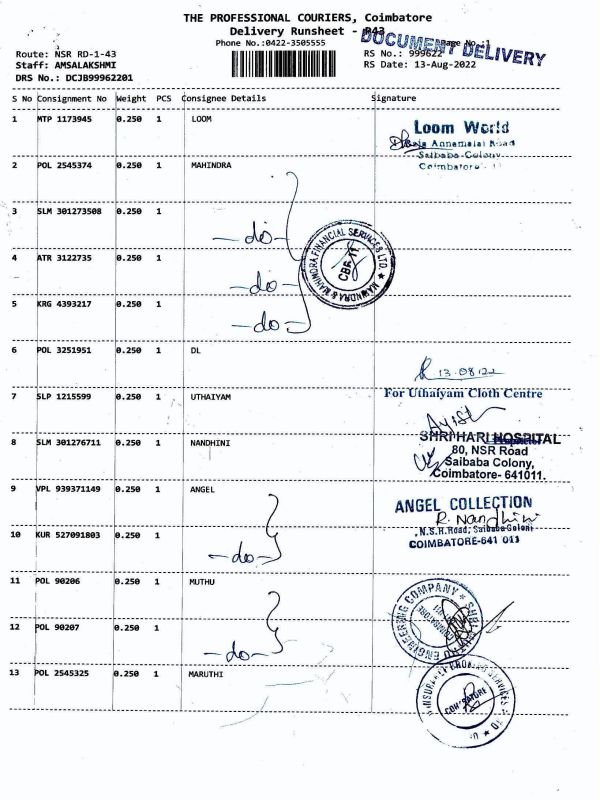 THE PROFESSIONAL COURIERS, Coimbatore
Delivery Runsheet -
DOCUMENT DELIVERY
Phone No.:0422-3505555
Page No.:1
Route: NSR RD-1-43
RS No.: 999622
Staff: AMSALAKSHMI
RS Date: 13-Aug-2022
DRS No.: DCJB99962201
S No Consignment No Weight PCS Consignee Details Signature
1 MTP 1173945 0.250 1 LOOM
Loom World
Annamalai Road
Saibaba Colony
Coimbatore - 11
2 POL 2545374 0.250 1 MAHINDRA
3 SLM 301273508 0.250 1
-do-
MAHINDRA & MAHINDRA FINANCIAL SERVICES LTD.
CBR-11
4 ATR 3122735 0.250 1
-do-
5 KRG 4393217 0.250 1
-do-
6 POL 3251951 0.250 1 DL
13.08.22
7 SLP 1215599 0.250 1 UTHAIYAM
For Uthaiyam Cloth Centre
Proprietor
8 SLM 301276711 0.250 1 NANDHINI
SHRI HARI HOSPITAL
80, NSR Road
Saibaba Colony,
Coimbatore- 641011.
9 VPL 939371149 0.250 1 ANGEL
ANGEL COLLECTION
R. Nandhini
N.S.R.Road, Saibaba Coloni
COIMBATORE-641 011
10 KUR 527091803 0.250 1
-do-
11 POL 90206 0.250 1 MUTHU
ENGINEERING COMPANY
12 POL 90207 0.250 1
-do-
13 POL 2545325 0.250 1 MARUTHI
COIMBATORE